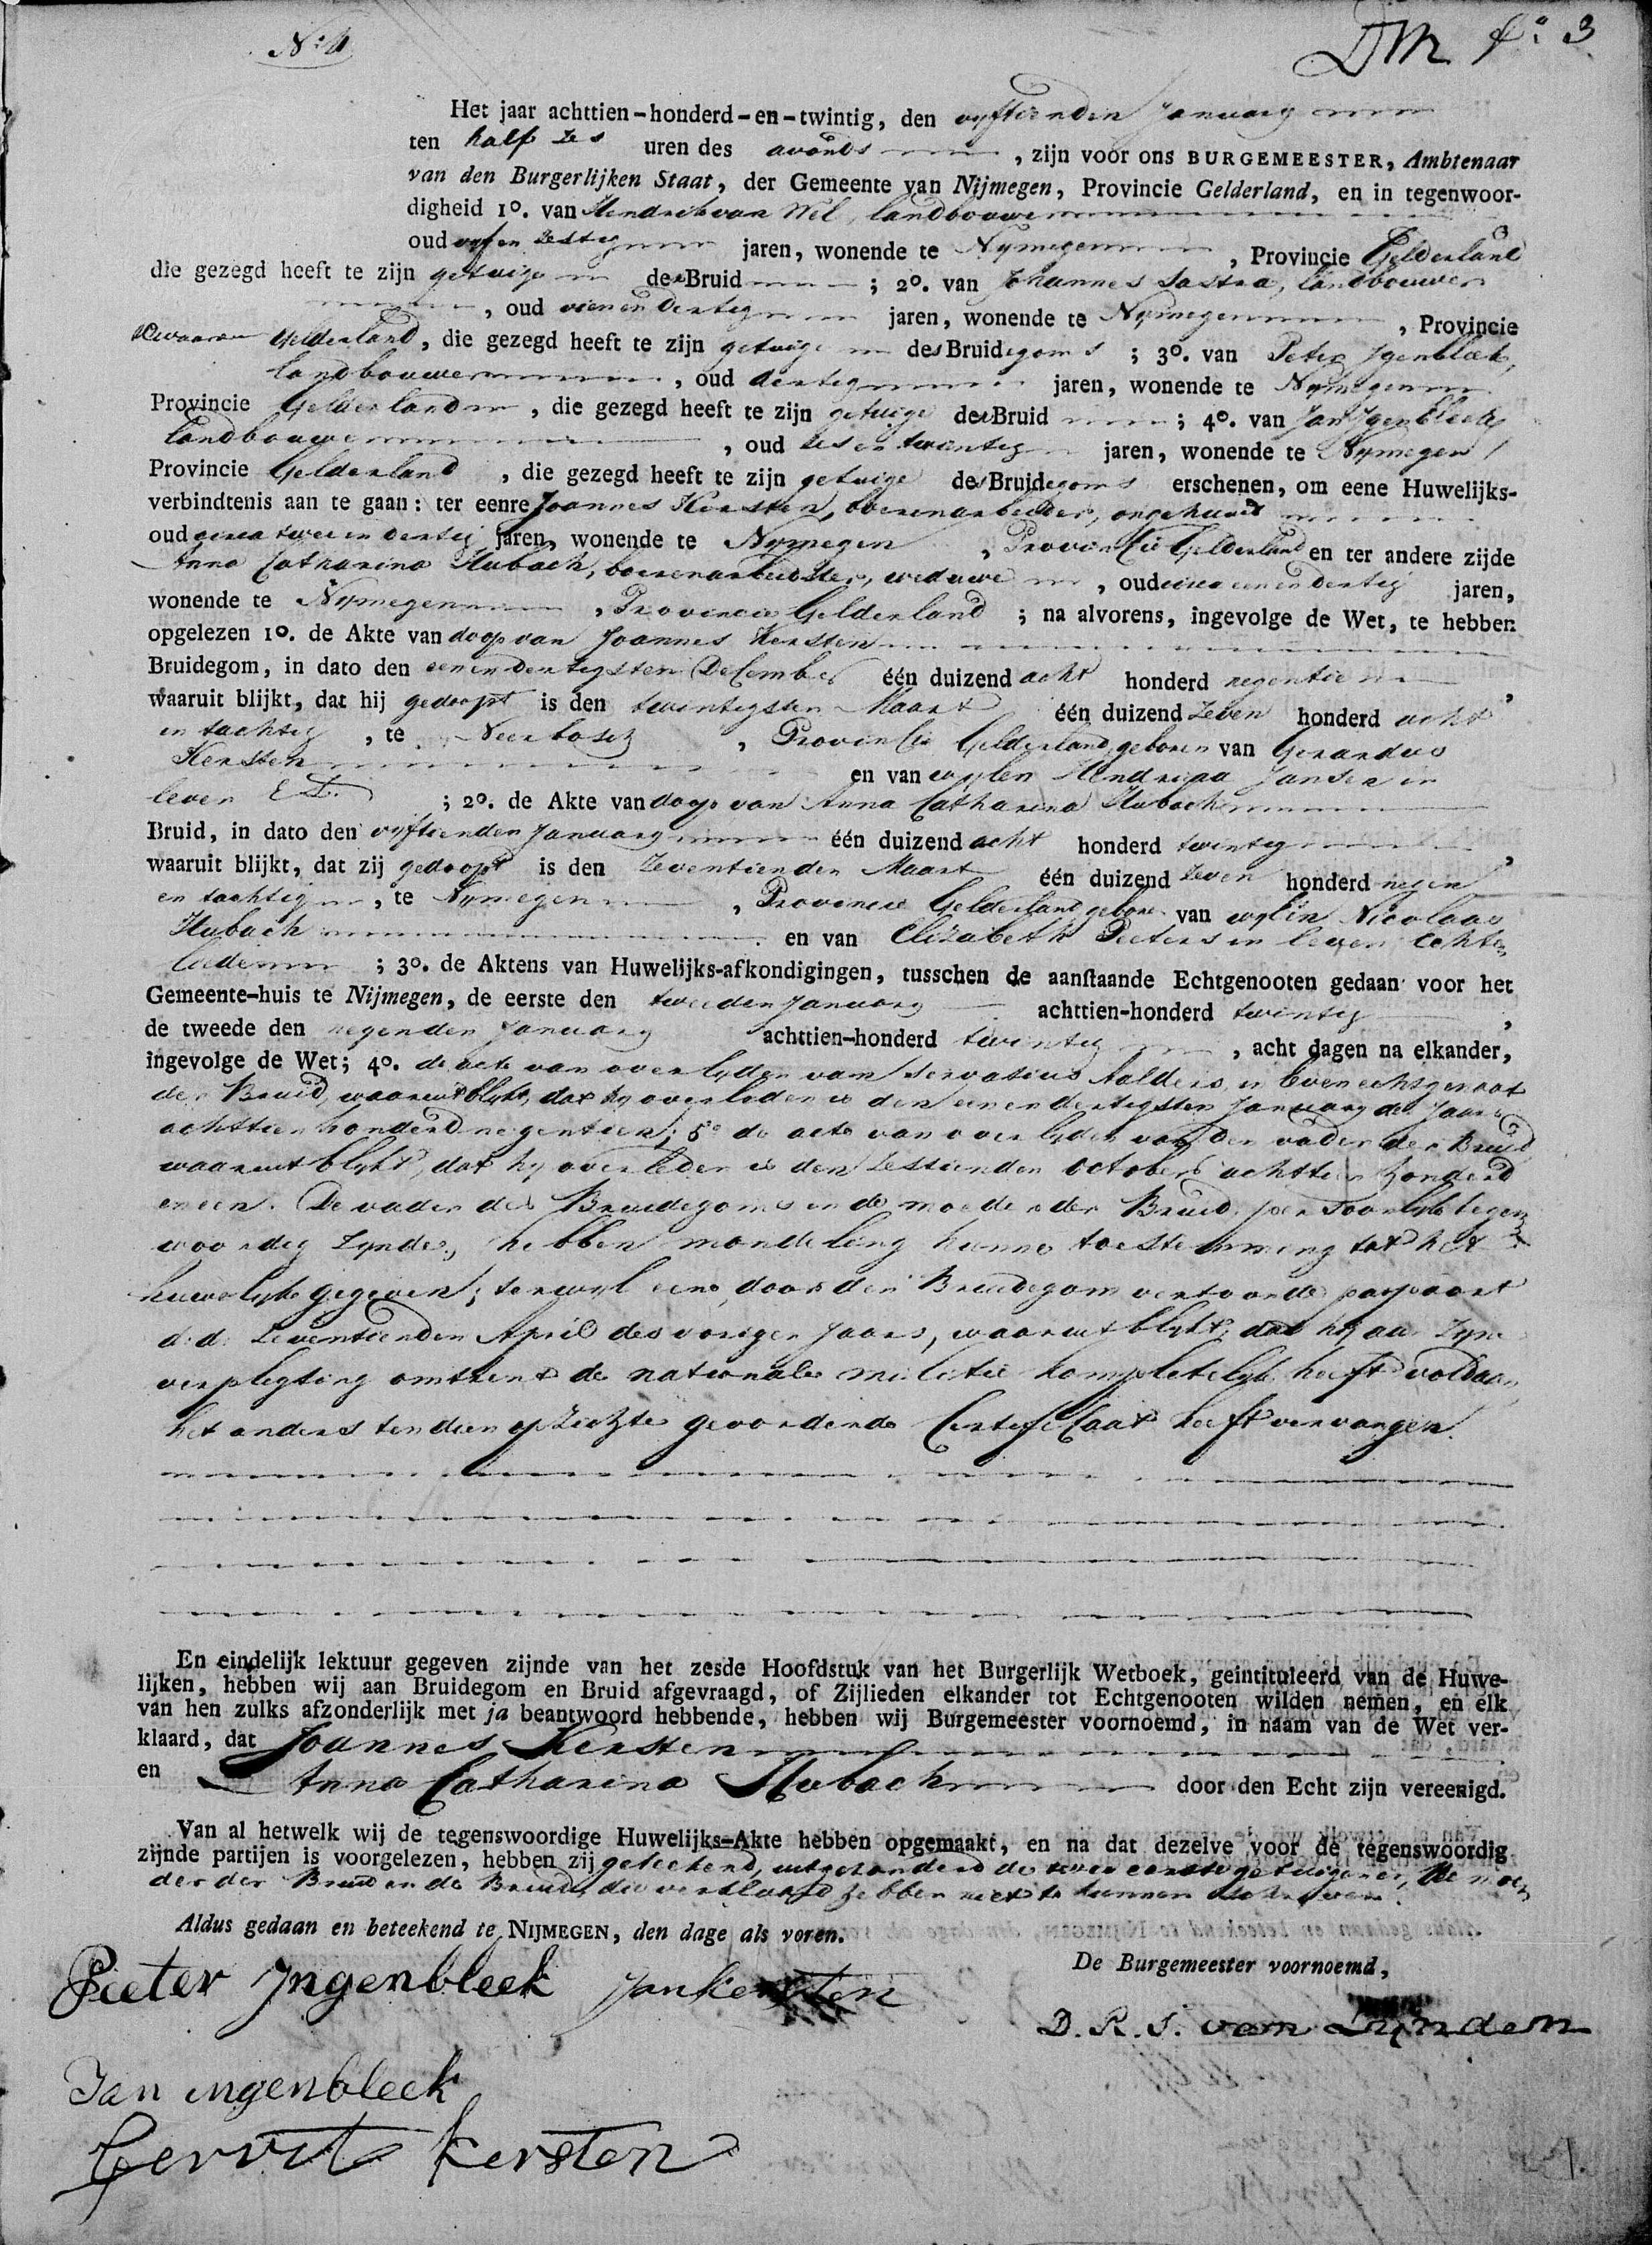 N: 4
f°: 3
Het jaar achttien-honderd-en-twintig, den vyftienden January
ten half zes uren des avonds , zijn voor ons BURGEMEESTER, Ambtenaar
van den Burgerlijken Staat, der Gemeente van Nijmegen, Provincie Gelderland, en in tegenwoor-
digheid 1o. van Hendrik van Wel, landbouwer
oud vyf en zestig jaren, wonende te Nymegen , Provincie Gelderland
die gezegd heeft te zijn getuige der Bruid ; 2o. van Johannes , landbouwer
, oud vier en dertig jaren, wonende te Nymegen , Provincie
Gelderland, die gezegd heeft te zijn getuige des Bruidegoms ; 3o. van Peter Jgenbleek,
landbouwer , oud dertig jaren, wonende te Nymegen
Provincie Gelderland , die gezegd heeft te zijn getuige der Bruid ; 4o. van Jan Jgenbleek
landbouwer , oud zes en twintig jaren, wonende te Nymegen
Provincie Gelderland , die gezegd heeft te zijn getuige des Bruidegoms erschenen, om eene Huwelijks-
verbindtenis aan te gaan: ter eenre Joannes Kersten, boerenarbeider, ongehuwd
oud circa twee en dertig jaren, wonende te Nymegen , Provincie Gelderland en ter andere zijde
Anna Catharina Hubach, boerenarbeidster, weduwe , oud circa een en dertig jaren,
wonende te Nymegen , Provincie Gelderland ; na alvorens, ingevolge de Wet, te hebben
opgelezen 1o. de Akte van doop van Joannes Kersten
Bruidegom, in dato den een en dertigsten December één duizend acht honderd negentien ,
waaruit blijkt, dat hij gedoopt is den twintigsten Maart één duizend zeven honderd acht
en tachtig , te Neerbosch , Provincie Gelderland, geboren van Gerardus
Kersten en van wylen Hendrina Jansen in
leven Et. ; 2o. de Akte van doop van Anna Catharina Hubach
Bruid, in dato den vyftienden January één duizend acht honderd twintig ,
waaruit blijkt, dat zij gedoopt is den zeventienden Maart één duizend zeven honderd negen
en tachtig , te Nymegen , Provincie Gelderland geboren van wylen Nicolaas
Hubach en van Elizabeth Peeters in leven echte
lieden ; 3o. de Aktens van Huwelijks-afkondigingen, tusschen de aanstaande Echtgenooten gedaan voor het
Gemeente-huis te Nijmegen, de eerste den tweeden January achttien-honderd twintig ,
de tweede den negenden January achttien-honderd twintig , acht dagen na elkander,
ingevolge de Wet; 4o. de acte van overlyden van Servatius Aalders, in leven echtgenoot
der Bruid, waaruit blykt, dat hy overleden is den een en dertigsten January des jaars
achttien honderd negentien; 5o de acte van overlyden van den vader der Bruid
waaruit blykt, dat hy overleden is den zestienden october achttien honderd
en een. De vader des Bruidegoms en de moeder der Bruid, persoonlyk tegen
woordig zynde, hebben mondeling hunne toestemming tot het
huwelyk gegeven; terwyl eene, door den Bruidegom vertoonde paspoort
d:d: zeventienden April des vorigen jaars, waaruit blykt, dat hy aan zyne
verpligting omtrent de nationale militie kompletelyk heeft voldaan,
het anders ten dien opzichte gevorderde Certificaat heeft vervangen.
En eindelijk lektuur gegeven zijnde van het zesde Hoofdstuk van het Burgerlijk Wetboek, geintituleerd van de Huwe-
lijken, hebben wij aan Bruidegom en Bruid afgevraagd, of Zijlieden elkander tot Echtgenooten wilden nemen, en elk
van hen zulks afzonderlijk met ja beantwoord hebbende, hebben wij Burgemeester voornoemd, in naam van de Wet ver-
klaard, dat Joannes Kersten
en Anna Catharina Hubach door den Echt zijn vereenigd.
Van al hetwelk wij de tegenswoordige Huwelijks-Akte hebben opgemaakt, en na dat dezelve voor de tegenswoordig
zijnde partijen is voorgelezen, hebben zij geteekend, uitgezonderd de twee eerste getuigen, de moe
der der Bruid en de Bruid, die verklaard hebben niet te kunnen schryven.
Aldus gedaan en beteekend te NIJMEGEN, den dage als voren.
De Burgemeester voornoemd,
Pieter Jngenbleek Jan kersten
D. R. J. van Lynden
Jan ingenbleek
Gerrit Kersten